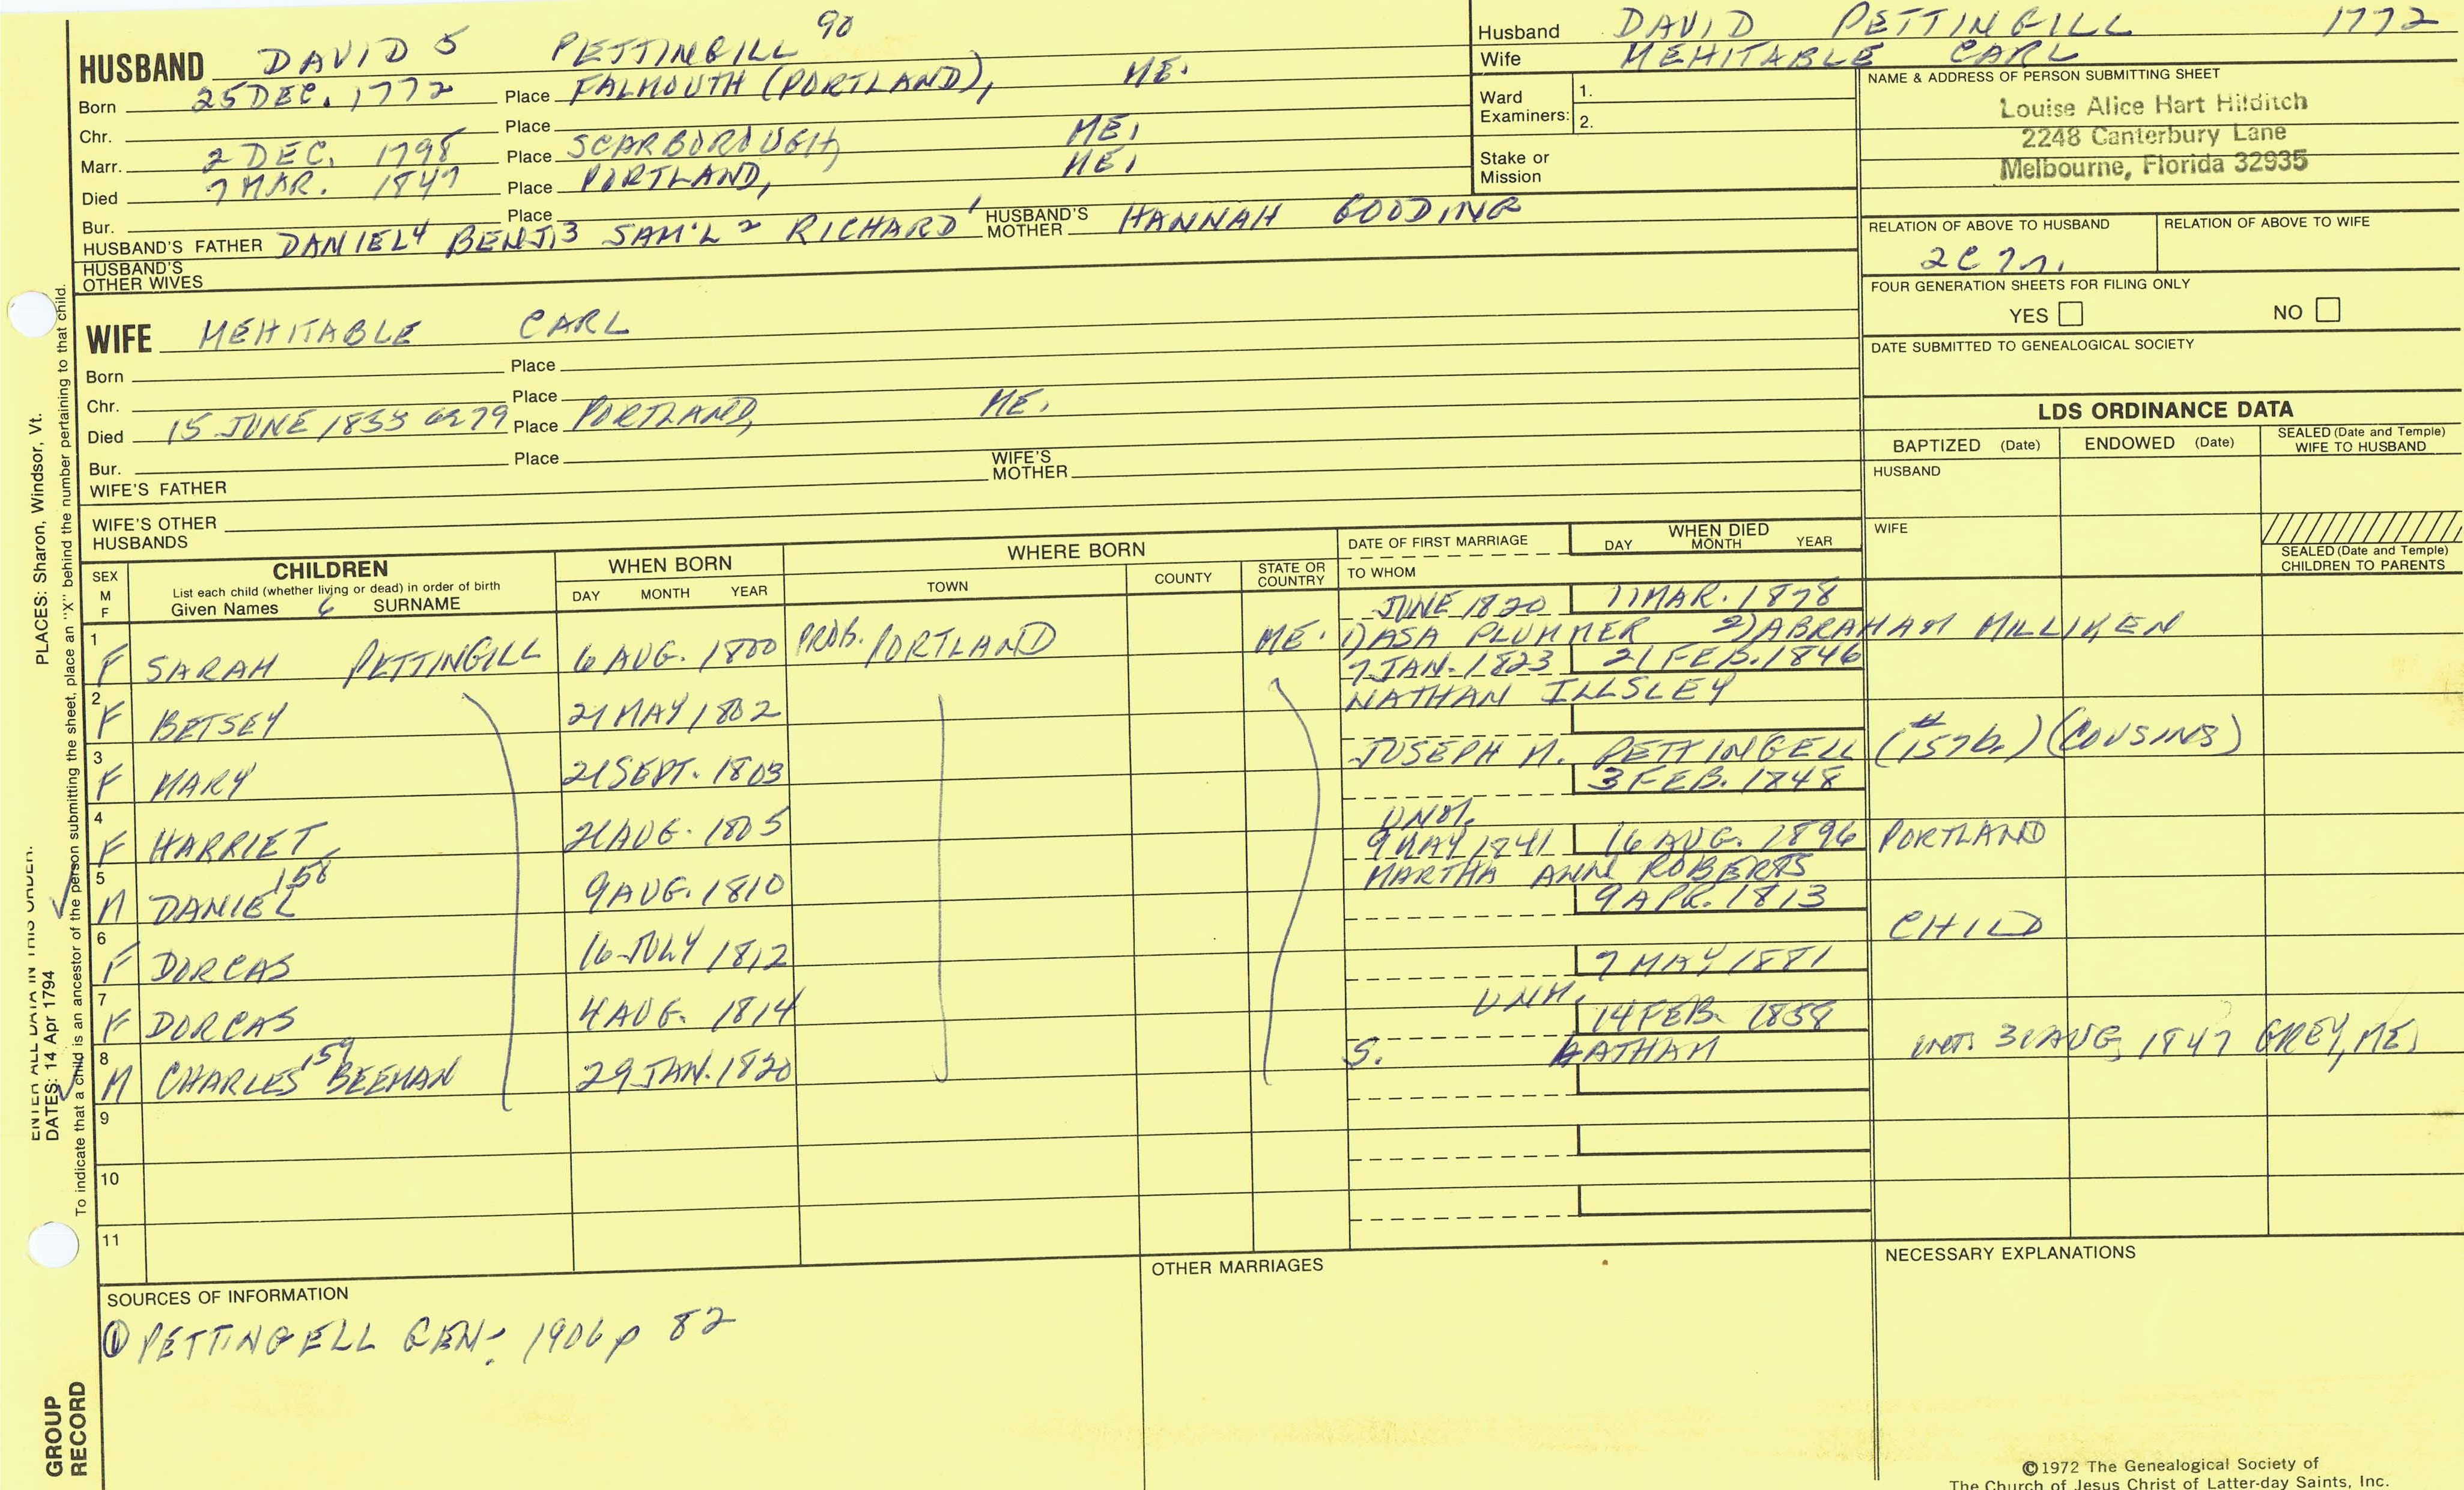 HUSBAND DAVID 5 PETTINGILL 90
Born 25 DEC. 1772 Place FALMOUTH (PORTLAND), ME.
Chr. Place
Marr. 2 DEC. 1798 Place SCARBOROUGH, ME.
Died 7 MAR. 1847 Place PORTLAND, ME.
Bur. Place
HUSBAND'S FATHER DANIEL 4 BENJ. 3 SAM'L 2 RICHARD 1 HUSBAND'S MOTHER HANNAH GOODING
HUSBAND'S OTHER WIVES
Husband DAVID PETTINGILL 1772
Wife MEHITABLE CARL
Ward Examiners: 1.
2.
Stake or Mission
NAME & ADDRESS OF PERSON SUBMITTING SHEET
Louise Alice Hart Hilditch
2248 Canterbury Lane
Melbourne, Florida 32935
RELATION OF ABOVE TO HUSBAND RELATION OF ABOVE TO WIFE
2C 7r.
FOUR GENERATION SHEETS FOR FILING ONLY
YES NO
DATE SUBMITTED TO GENEALOGICAL SOCIETY
WIFE MEHITABLE CARL
Born Place
Chr. Place
Died 15 JUNE 1855 79 Place PORTLAND, ME.
Bur. Place
WIFE'S FATHER WIFE'S MOTHER
WIFE'S OTHER HUSBANDS
LDS ORDINANCE DATA
BAPTIZED (Date) ENDOWED (Date) SEALED (Date and Temple) WIFE TO HUSBAND
HUSBAND
WIFE
SEALED (Date and Temple) CHILDREN TO PARENTS
SEX M F
CHILDREN
List each child (whether living or dead) in order of birth
Given Names 6 SURNAME
WHEN BORN
DAY MONTH YEAR
WHERE BORN
TOWN COUNTY STATE OR COUNTRY
DATE OF FIRST MARRIAGE
TO WHOM
WHEN DIED
DAY MONTH YEAR
JUNE 1820 11 MAR. 1878
1 F SARAH PETTINGILL 6 AUG. 1800 PROB. PORTLAND ME. 1) ASA PLUMMER 2) ABRAHAM MILLIKEN
7 JAN. 1823 21 FEB. 1846
2 F BETSEY 21 MAY 1802 NATHAN ILLSLEY
3 F MARY 21 SEPT. 1803 JOSEPH M. PETTINGELL (#157b.) (COUSINS)
3 FEB. 1848
4 F HARRIET 21 AUG. 1805 UNM.
9 MAY 1841 16 AUG. 1896 PORTLAND
5 M DANIEL 158 9 AUG. 1810 MARTHA ANN ROBERTS
9 APR. 1813
6 F DORCAS 16 JULY 1812 CHILD
7 MAY 1881
7 F DORCAS 4 AUG. 1814 UNM.
14 FEB. 1858
8 M CHARLES 159 BEEMAN 29 JAN. 1820 S. LATHAM INT. 31 AUG. 1847 GREY, ME.
9
10
11
SOURCES OF INFORMATION
① PETTINGELL GEN. 1906 p 82
OTHER MARRIAGES
NECESSARY EXPLANATIONS
©1972 The Genealogical Society of
The Church of Jesus Christ of Latter-day Saints, Inc.
PLACES: Sharon, Windsor, Vt.
ENTER ALL DATA IN THIS ORDER:
DATES: 14 Apr 1794
To indicate that a child is an ancestor of the person submitting the sheet, place an "X" behind the number pertaining to that child.
GROUP
RECORD